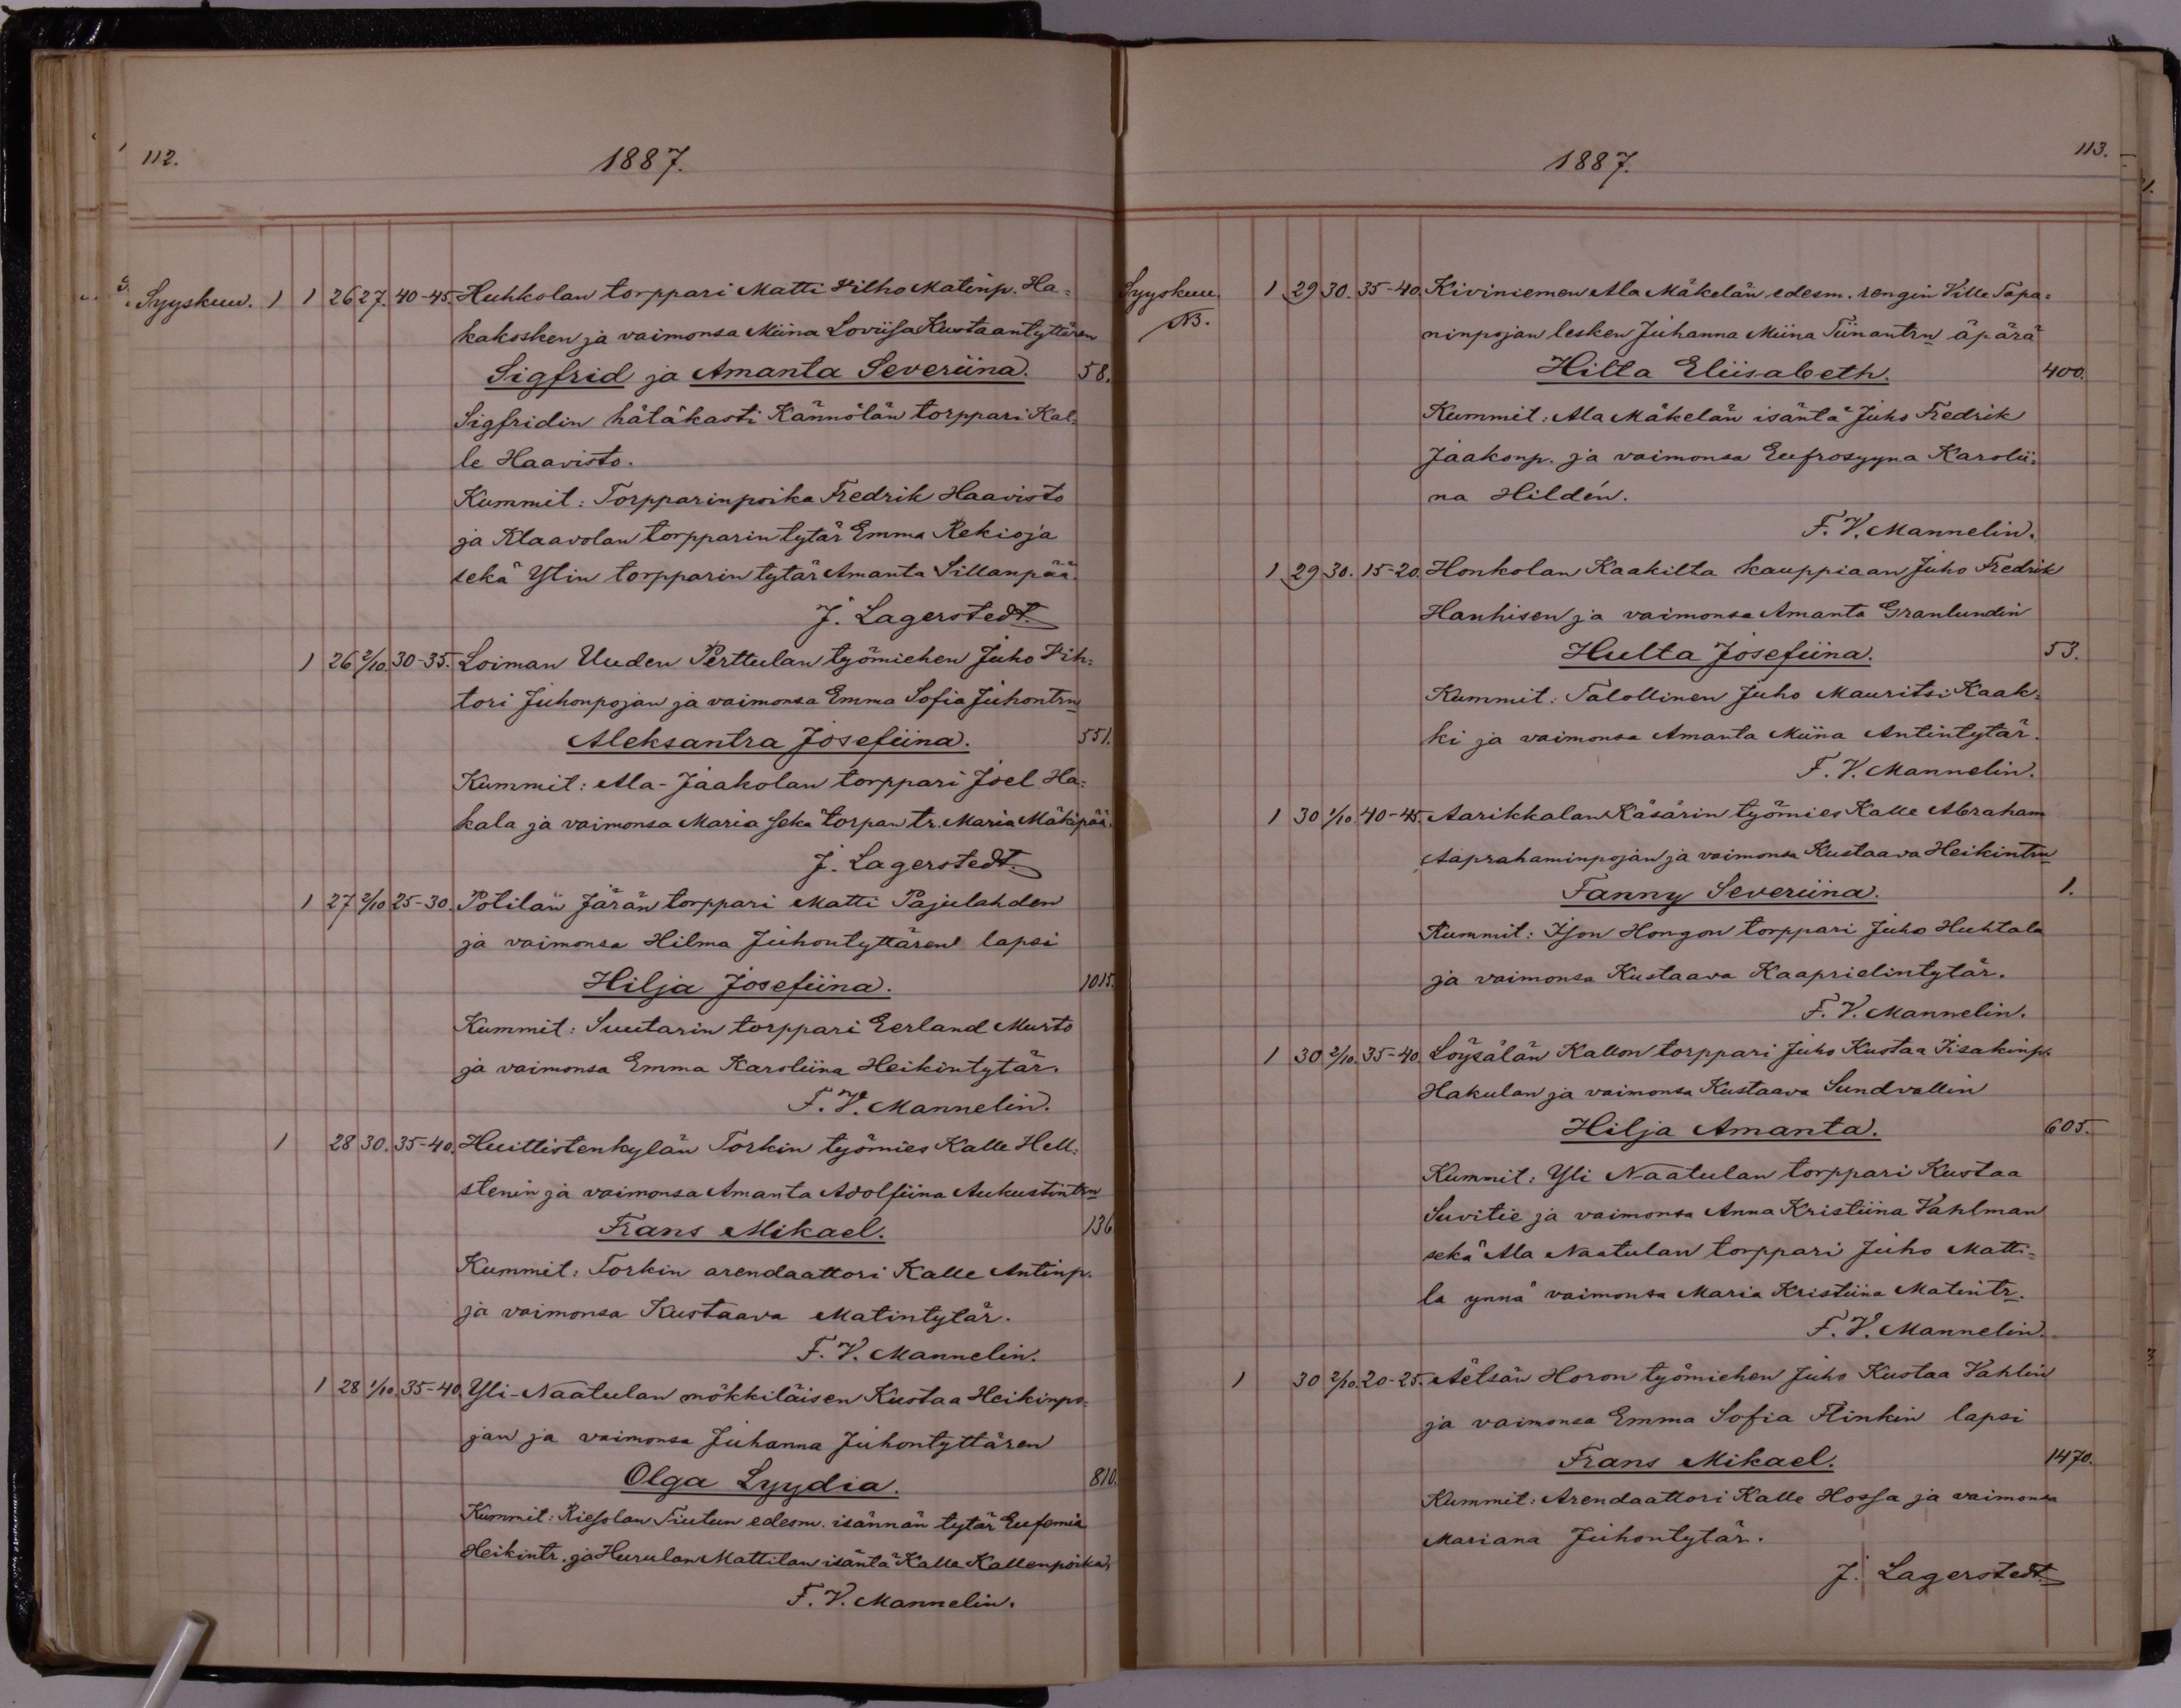 112.
1887.
Syyskuu. 1 1 26 27. 40-45. Huhkolan torppari Matti Vilho Matinp. Ha=
kakosken ja vaimonsa Miina Loviisa Kustaantyttären
Sigfrid ja Amanta Severiina. 58.
Sigfridin hätäkasti Kännölän torppari Kal=
le Haavisto.
Kummit: Torpparinpoika Fredrik Haavisto
ja Klaavolan torpparin tytär Emma Rekioja
sekä Ylin torpparin tytär Amanta Sillanpää.
J. Lagerstedt.
1 26 2/10. 30-35. Loiman Uuden Perttulan työmiehen Juho Vih=
tori Juhonpojan ja vaimonsa Emma Sofia Juhontrn
Aleksantra Josefiina. 551.
Kummit: Ala-Jaakolan torppari Joel Ha=
kala ja vaimonsa Maria sekä torpan tr. Maria Mäkipää.
J. Lagerstedt.
1 27 2/10 25-30. Potilän Järän torppari Matti Pajulahden
ja vaimonsa Hilma Juhontyttären lapsi
Hilja Josefiina. 1015.
Kummit: Suutarin torppari Eerland Murto
ja vaimonsa Emma Karoliina Heikintytär.
F. V. Mannelin.
1 28 30. 35-40. Huittistenkylän Torkin työmies Kalle Hell=
stenin ja vaimonsa Amanta Adolfiina Aukustintrn
Frans Mikael. 136
Kummit: Torkin arendaattori Kalle Antinp.
ja vaimonsa Kustaava Matintytär.
F. V. Mannelin.
1 28 1/10. 35-40. Yli-Naatulan mökkiläisen Kustaa Heikinpo=
jan ja vaimonsa Juhanna Juhontyttären
Olga Lyydia. 810.
Kummit: Riesolan Tiutun edesm. isännän tytär Eufemia
Heikintr. ja Hurulan Mattilan isäntä Kalle Kallenpoika.
F. V. Mannelin.
1887.
113.
Syyskuu. 1 29 30. 35-40. Kiviniemen Ala Mäkelän edesm. rengin Ville Tapa=
NB. ninpojan lesken Juhanna Miina Tiinantrn äpärä
Hilta Eliisabeth. 400.
Kummit: Ala Mäkelän isäntä Juho Fredrik
Jaakonp. ja vaimonsa Eufrosyyna Karolii=
na Hildén.
F. V. Mannelin.
1 29 30. 15-20. Honkolan Kaakilta kauppiaan Juho Fredrik
Hanhisen ja vaimonsa Amanta Granlundin
Hulta Josefiina. 53.
Kummit: Talollinen Juho Mauritsi Kaak=
ki ja vaimonsa Amanta Miina Antintytär.
F. V. Mannelin.
1 30 1/10. 40-45. Aarikkalan Käsärin työmies Kalle Abraham
Aaprahaminpojan ja vaimonsa Kustaava Heikintrn
Fanny Severiina. 1.
Kummit: Ison Hongon torppari Juho Huhtala
ja vaimonsa Kustaava Kaaprielintytär.
F. V. Mannelin.
1 30 2/10. 35-40. Löysälän Kallon torppari Juho Kustaa Iisakinp.
Hakulan ja vaimonsa Kustaava Sundvallin
Hilja Amanta. 605.
Kummit: Yli Naatulan torppari Kustaa
Suvitie ja vaimonsa Anna Kristiina Vahlman
sekä Ala Naatulan torppari Juho Matti=
la ynnä vaimonsa Maria Kristiina Matintr.
F. V. Mannelin.
1 30 2/10. 20-25. Äetsän Horon työmiehen Juho Kustaa Vahlin
ja vaimonsa Emma Sofia Flinkin lapsi
Frans Mikael. 1470.
Kummit: Arendaattori Kalle Hossa ja vaimonsa
Mariana Juhontytär.
J. Lagerstedt.